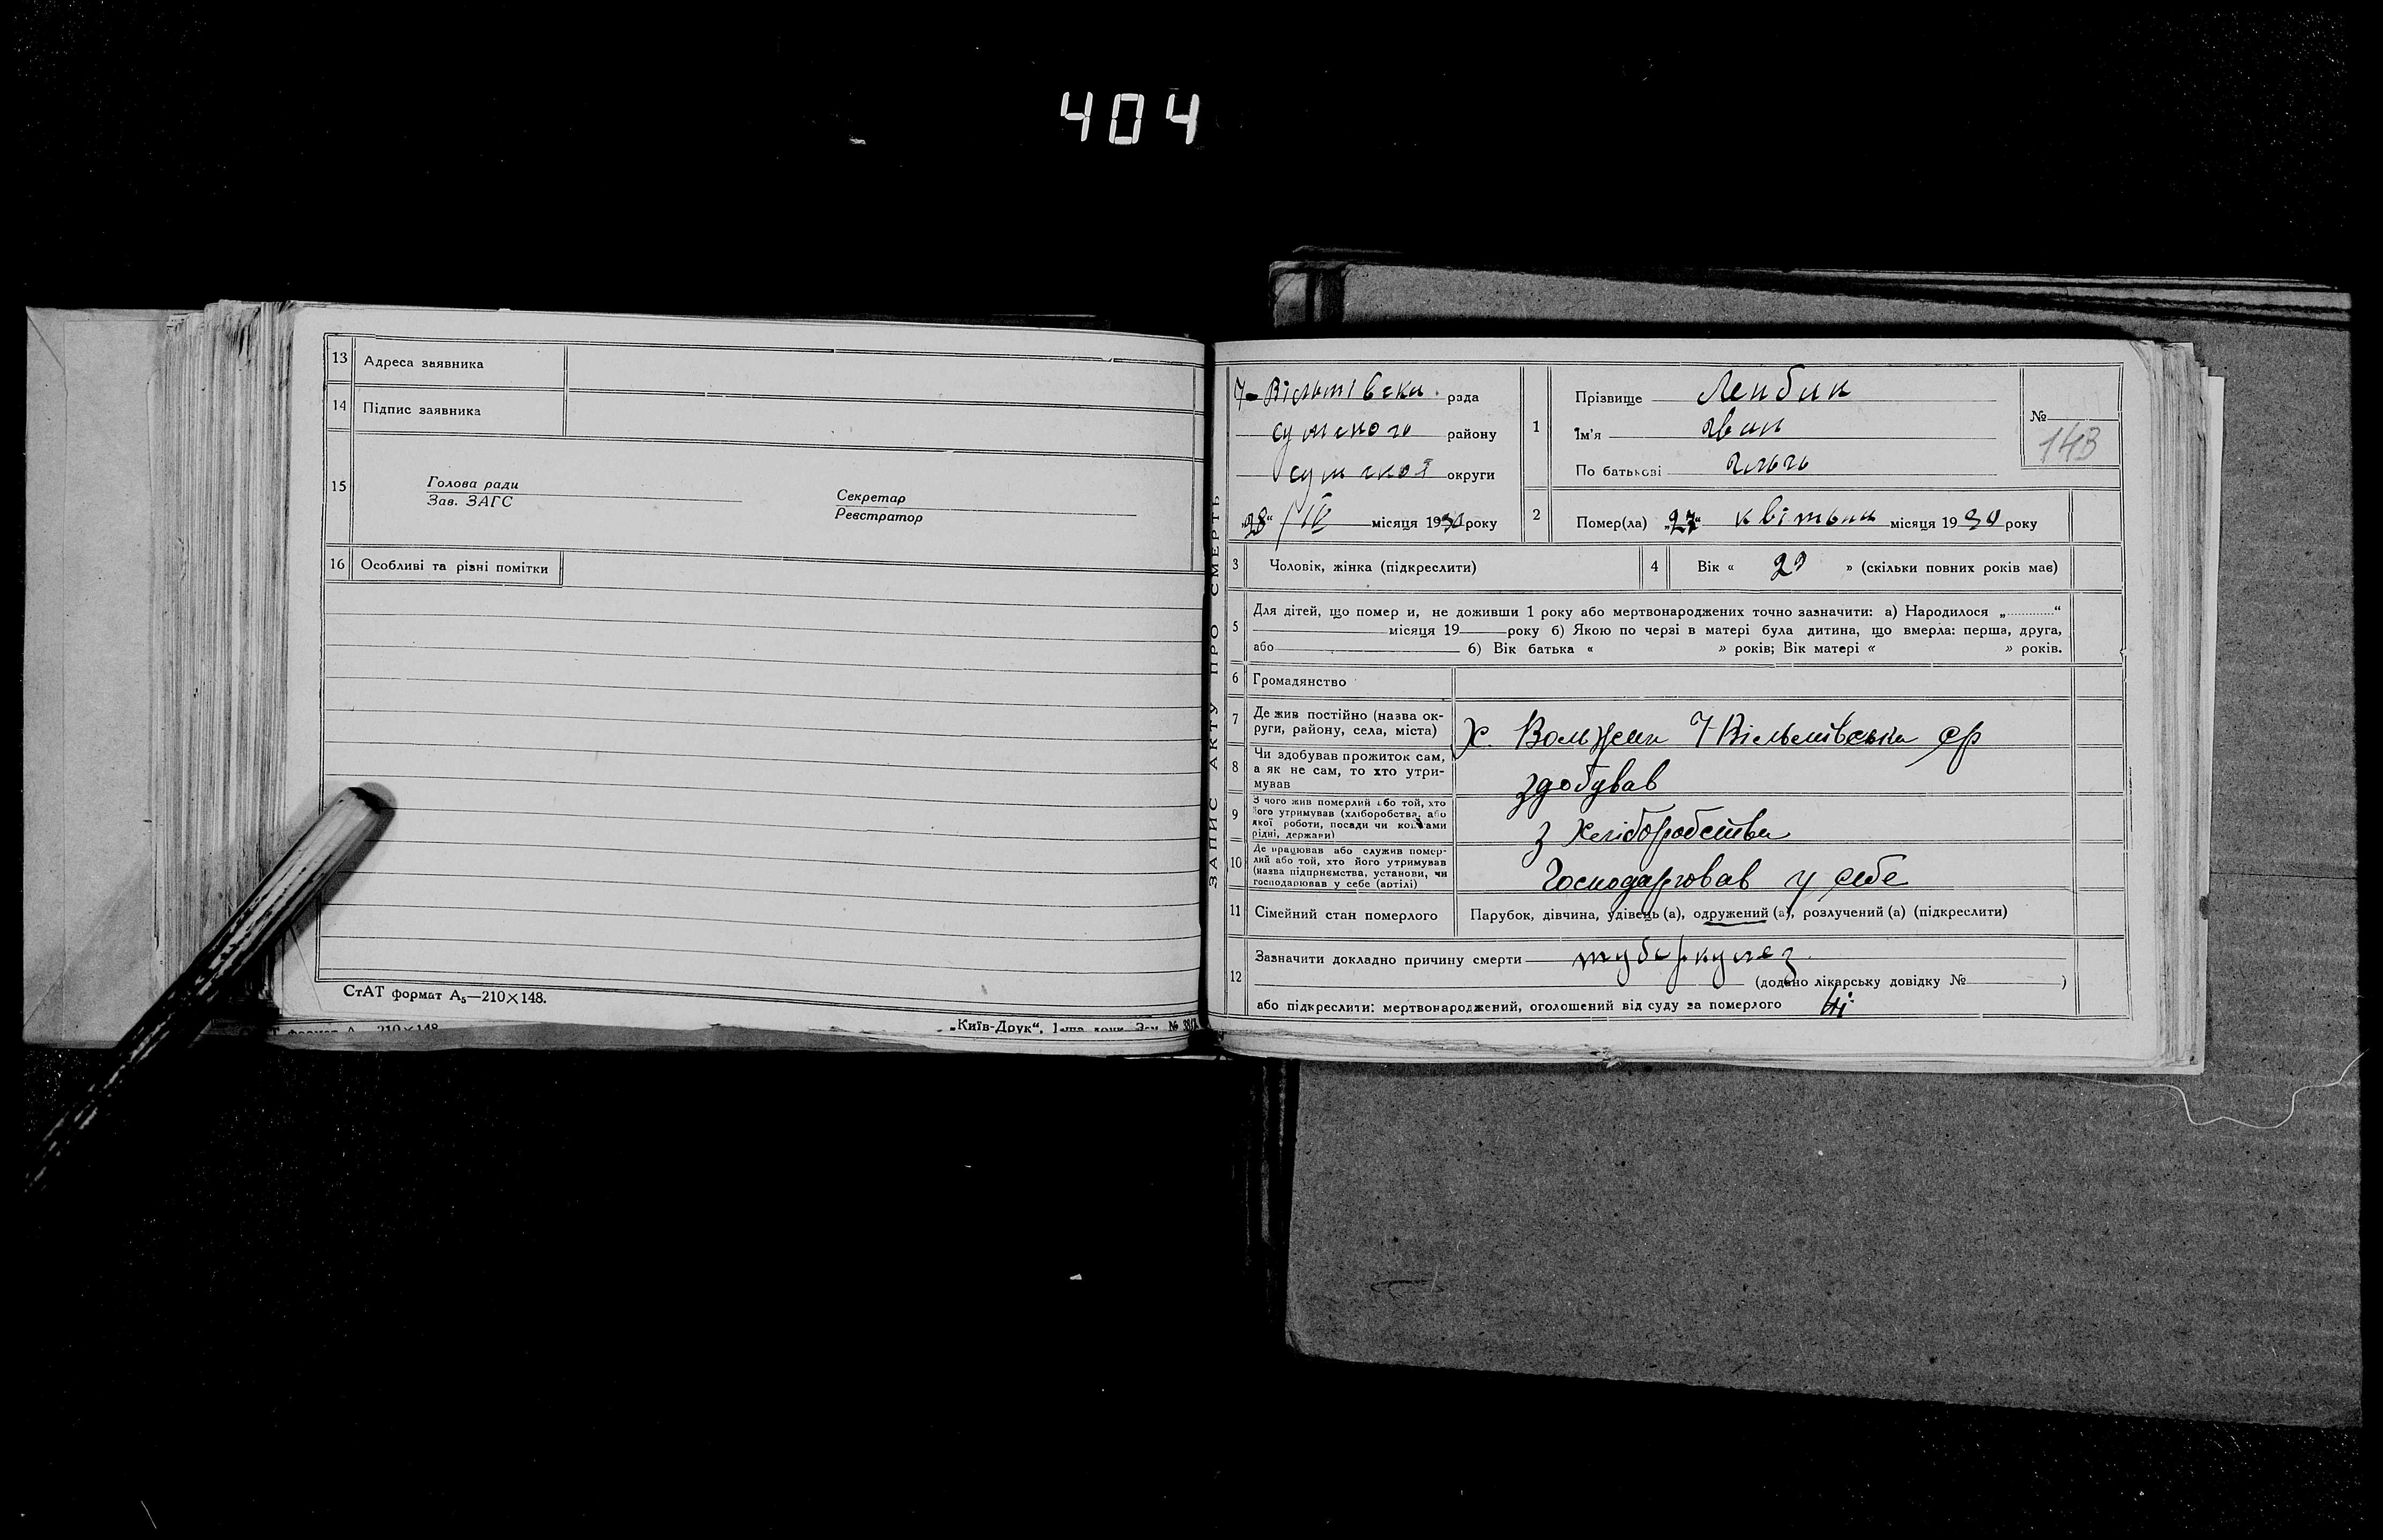 404
13 Адреса заявника
14 Підпис заявника
15
Голова ради
Зав. ЗАГС
Секретар
Реєстратор
16 Особливі та різні помітки
СтАТ формат А₅—210×148.
„Київ-Друк“,
ЗАПИС АКТУ ПРО СМЕРТЬ
рада
сумского району
сумскої округи
„28“ / IV місяця 1930 року
1 Прізвище
Ім'я Іван
По батькові
№ 143
2 Помер(ла) „27“ квітня місяця 1930 року
3 Чоловік, жінка (підкреслити)
4 Вік « 29 » (скільки повних років має)
5 Для дітей, що помер и, не доживши 1 року або мертвонароджених точно зазначити: а) Народилося „ “
місяця 19 року б) Якою по черзі в матері була дитина, що вмерла: перша, друга,
або 6) Вік батька « » років; Вік матері « » років.
6 Громадянство
7 Де жив постійно (назва ок-
руги, району, села, міста)
Х. ср
8 Чи здобував прожиток сам,
а як не сам, то хто утри-
мував
здобував
9 З чого жив померлий або той, хто
його утримував (хліборобства, або
якої роботи, посади чи коштами
рідні, держави)
з Хліборобства
10 Де працював або служив помер-
лий або той, хто його утримував
(назва підприємства, установи, чи
господарював у себе (артілі)
Господарював у себе
11 Сімейний стан померлого
Парубок, дівчина, удівець (а), одружений (а), розлучений (а) (підкреслити)
12 Зазначити докладно причину смерти туберкулез
(додано лікарську довідку № )
або підкреслити: мертвонароджений, оголошений від суду за померлого ні